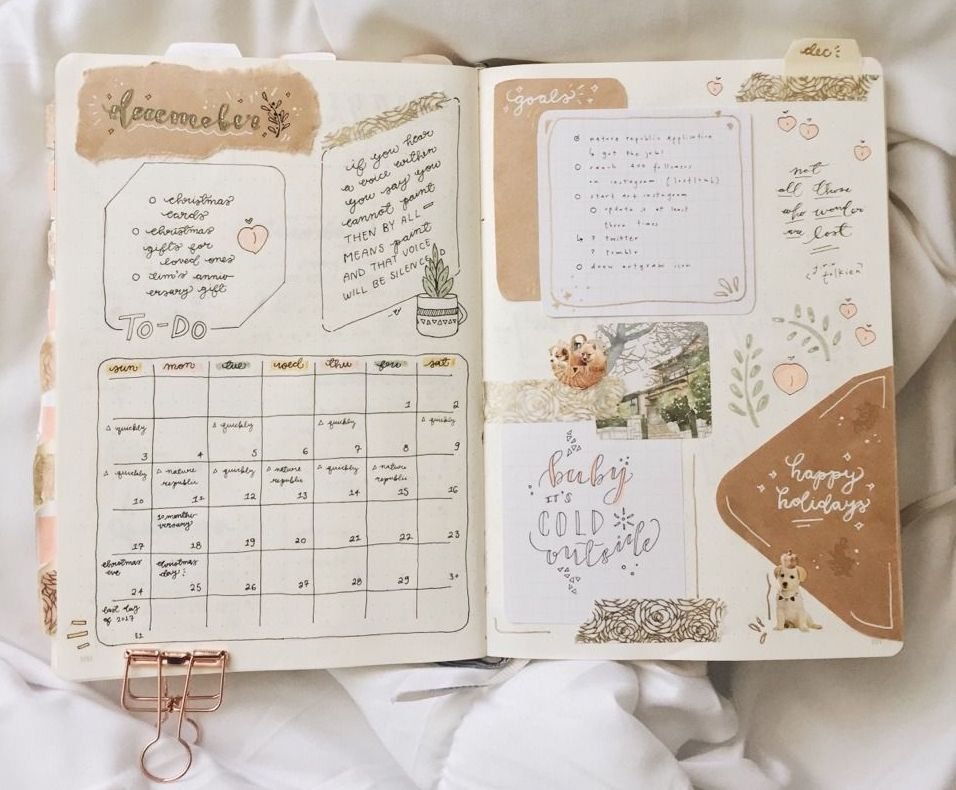 december
christmas
cards
christmas
gifts for
loved ones
tim's anniv-
ersary gift
TO-DO
if you hear
a voice within
you say you
cannot paint
THEN BY ALL
MEANS paint
AND THAT VOICE
WILL BE SILENCED
sun mon tue wed thu fri sat
1 2
quickly quickly quickly quickly
3 4 5 6 7 8 9
quickly nature quickly nature quickly nature
republic republic republic
10 11 12 13 14 15 16
10 month-
versary
17 18 19 20 21 22 23
christmas christmas
eve day!
24 25 26 27 28 29 30
last day
of 2017
31
dec
goals
nature republic application
got the job!
reach 400 followers
on instagram
start art instagram
update at least
three times
? twitter
? tumblr
draw artgram icon
not
all those
who wander
are lost
tolkien
baby
IT'S
COLD
outside
happy
holidays